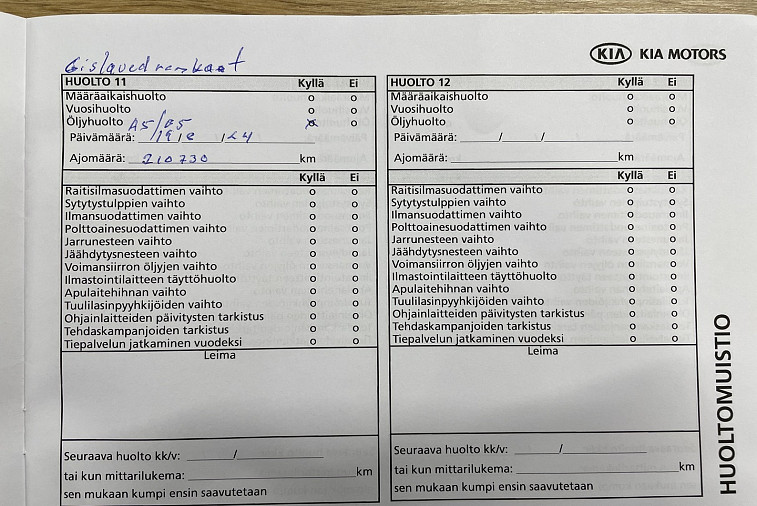 KIA KIA MOTORS
Gislaved renkaat
HUOLTO 11 Kyllä Ei
Määräaikaishuolto o o
Vuosihuolto o o
Öljyhuolto A5/B5 x o
Päivämäärä: 19/2/24
Ajomäärä: 210730 km
Kyllä Ei
Raitisilmasuodattimen vaihto o o
Sytytystulppien vaihto o o
Ilmansuodattimen vaihto o o
Polttoainesuodattimen vaihto o o
Jarrunesteen vaihto o o
Jäähdytysnesteen vaihto o o
Voimansiirron öljyjen vaihto o o
Ilmastointilaitteen täyttöhuolto o o
Apulaitehihnan vaihto o o
Tuulilasinpyyhkijöiden vaihto o o
Ohjainlaitteiden päivitysten tarkistus o o
Tehdaskampanjoiden tarkistus o o
Tiepalvelun jatkaminen vuodeksi o o
Leima
Seuraava huolto kk/v: ______/____________
tai kun mittarilukema: ______________________ km
sen mukaan kumpi ensin saavutetaan
HUOLTO 12 Kyllä Ei
Määräaikaishuolto o o
Vuosihuolto o o
Öljyhuolto o o
Päivämäärä: ______/______/____________
Ajomäärä: ______________________ km
Kyllä Ei
Raitisilmasuodattimen vaihto o o
Sytytystulppien vaihto o o
Ilmansuodattimen vaihto o o
Polttoainesuodattimen vaihto o o
Jarrunesteen vaihto o o
Jäähdytysnesteen vaihto o o
Voimansiirron öljyjen vaihto o o
Ilmastointilaitteen täyttöhuolto o o
Apulaitehihnan vaihto o o
Tuulilasinpyyhkijöiden vaihto o o
Ohjainlaitteiden päivitysten tarkistus o o
Tehdaskampanjoiden tarkistus o o
Tiepalvelun jatkaminen vuodeksi o o
Leima
Seuraava huolto kk/v: ______/____________
tai kun mittarilukema: ______________________ km
sen mukaan kumpi ensin saavutetaan
HUOLTOMUISTIO